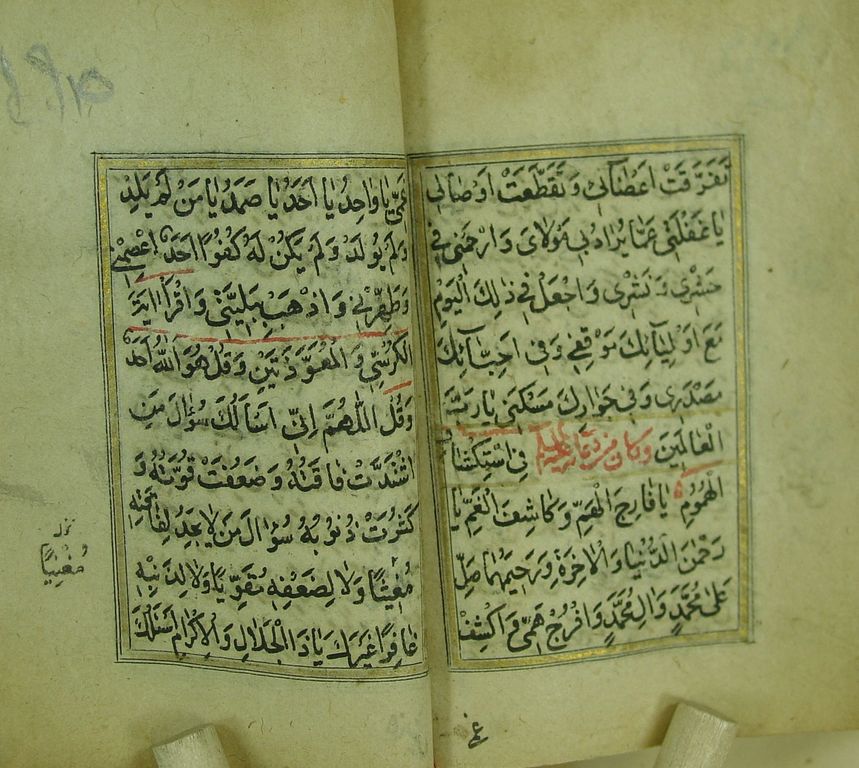 تَفَرَّقَتْ اَعْضَائِى وَتَقَطَّعَتْ اَوْصَالِى
يَا غَفْلَتِى عَمَّا يُرَادُ بِى مَوْلَاىَ وَارْحَمْنِى فِى
حَشْرِى وَنَشْرِى وَاجْعَلْ فِى ذٰلِكَ الْيَوْمِ
مَعَ اَوْلِيَائِكَ مَوْقِفِى وَفِى اَحِبَّائِكَ
مَصْدَرِى وَفِى جَوَارِكَ مَسْكَنِى يَا رَبَّ
الْعَالَمِينَ وَكَانَ مِنْ دُعَائِهِ عَلَيْهِ السَّلَامُ فِى اسْتِكْشَافِ
الْهُمُومِ يَا فَارِجَ الْهَمِّ وَكَاشِفَ الْغَمِّ يَا
رَحْمٰنَ الدُّنْيَا وَالْاٰخِرَةِ وَرَحِيمَهُمَا صَلِّ
عَلٰى مُحَمَّدٍ وَاٰلِ مُحَمَّدٍ وَافْرُجْ هَمِّى وَاكْشِفْ
غمى
غَمِّى يَا وَاحِدُ يَا اَحَدُ يَا صَمَدُ يَا مَنْ لَمْ يَلِدْ
وَلَمْ يُولَدْ وَلَمْ يَكُنْ لَهُ كُفُوًا اَحَدٌ اعْصِمْنِى
وَطَهِّرْنِى وَاذْهَبْ بِبَلِيَّتِى وَاقْرَأْ اٰيَةَ
الْكُرْسِىِّ وَالْمُعَوِّذَتَيْنِ وَقُلْ هُوَ اللّٰهُ اَحَدٌ
وَقُلْ اَللّٰهُمَّ اِنِّى اَسْاَلُكَ سُؤَالَ مَنِ
اشْتَدَّتْ فَاقَتُهُ وَضَعُفَتْ قُوَّتُهُ وَ
كَثُرَتْ ذُنُوبُهُ سُؤَالَ مَنْ لَا يَجِدُ لِفَاقَتِهِ
مُغِيثًا وَلَا لِضَعْفِهِ مُقَوِّيًا وَلَا لِذَنْبِهِ
غَافِرًا غَيْرَكَ يَا ذَا الْجَلَالِ وَالْاِكْرَامِ اَسْئَلُكَ
مُغْنِيًا